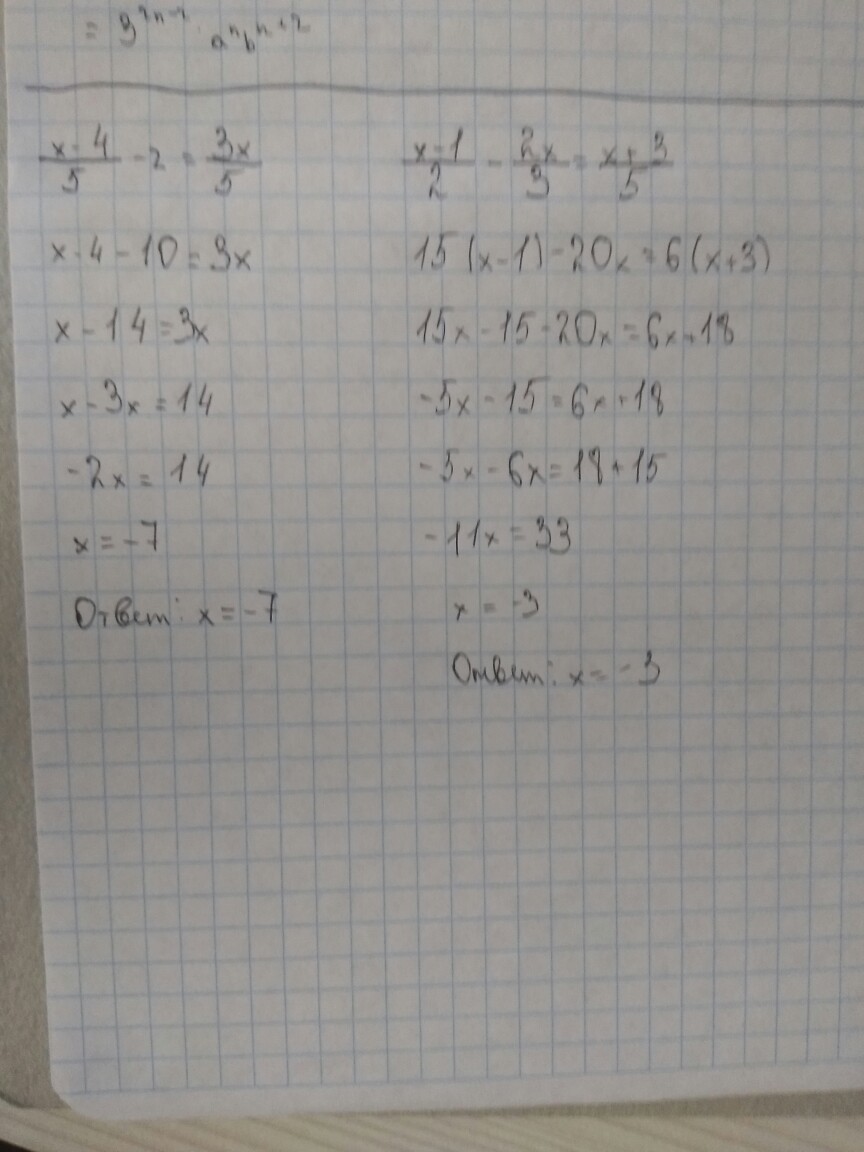 = 3^{2n-2} · a^n b^{n+2}
(x-4)/5 - 2 = 3x/5
x-4-10=3x
x-14=3x
x-3x=14
-2x=14
x=-7
Ответ: x=-7
(x-1)/2 - 2x/3 = (x+3)/5
15(x-1)-20x=6(x+3)
15x-15-20x=6x+18
-5x-15=6x+18
-5x-6x=18+15
-11x=33
x=-3
Ответ: x=-3